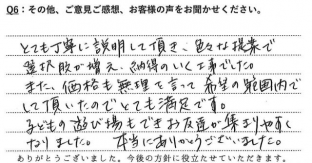 Q6：その他、ご意見ご感想、お客様の声をお聞かせください。
とても丁寧に説明して頂き、色々な提案で
選択肢が増え、納得のいく工事でした。
また、価格も無理を言って希望の範囲内で
して頂いたのでとても満足です。
子どもの遊び場もできお友達が集まりやすく
なりました。 本当にありがとうございました。
ありがとうございました。今後の方針に役立たせていただきます。